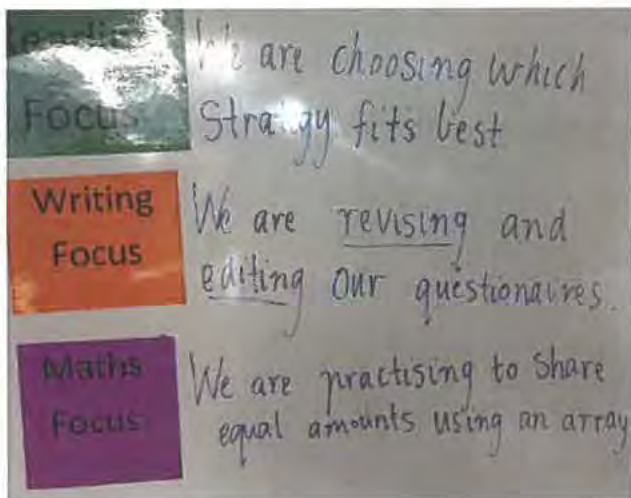 Reading
Focus
We are choosing which
Stratgy fits best
Writing
Focus
We are revising and
editing our questionaires.
Maths
Focus
We are practising to share
equal amounts using an array